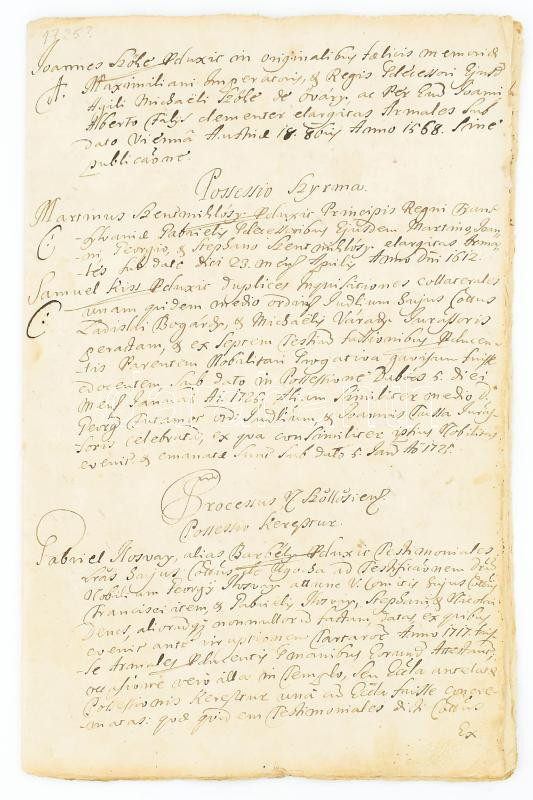 1725?
Joannes Szőke Pduxit in originalibus foelicis memoriae
A. Maximiliani Imperatoris, & Regis Pdecessori Ejusd
Michaëli Szőke de Óvári, ac Per Eund Joanni
Alberto Filijs clementer elargitas Armales Sub
dato Viennae Austriae 18. 8bris Anno 1568. Sine
publicaone
Possessio Szyrma.
Martinus Szentmiklósy Pduxit Principis Regni Tran
C: sylvaniae Gabrielis Pdecessoribus Ejusdem Martino, Joan
ni Georgio, & Stephano Szent miklósy elargitas Arma
les sub dato diei 23. mens Aprilis Anno Dni 1612.
Samuel Kiss Pduxit duplices Inquisitiones collaterales
C: unam quidem medio ordin Judlium hujus Cottus
Ladislai Bogárdy, & Michaelis Várady Jurassoris
peractam, & ex septem Testium fassionibus Pducen
tis Parentem Nobilitari Progativa gavisum fuisse
docentem, Sub dato in Possessione Dabócz 5. diei
Mens Januarii Ai 1725. Aliam Similiter medio D.
Georg ord Judlium, & Joannis Tussa Juras
soris celebratam, ex qua consimiliter ipsius Nobilitas
evenit, & emanatae Sunt Sub dato 5. Jan Ao 1725.
Processus Szőllősien.
Possessio Kereptur.
Gabriel Ilosvay, alias Barbély Pduxit Testimoniales
Lras hujus Cottus de Ugocsa ad Testificaonem Dni
Nobilium Georgy Ilosvay attunc V. Comitis hujus Cottus
Francisci item, & Gabrielis Ilosvay, Stephani, & Nicolai
Dencs, aliorumq nonnullorum factam, datas ex quibus
evenit ante irruptionem Tartaror Anno 1717. fuis
se Armales Pducentis Pmanibus Eorund Attestant,
occasione vero illa in Templo, seu Eccla ancelatae
Possessionis Kereptur una cum Eccla fuisse concre
matas: quae quidem Testimoniales dicti Cottus
Ex